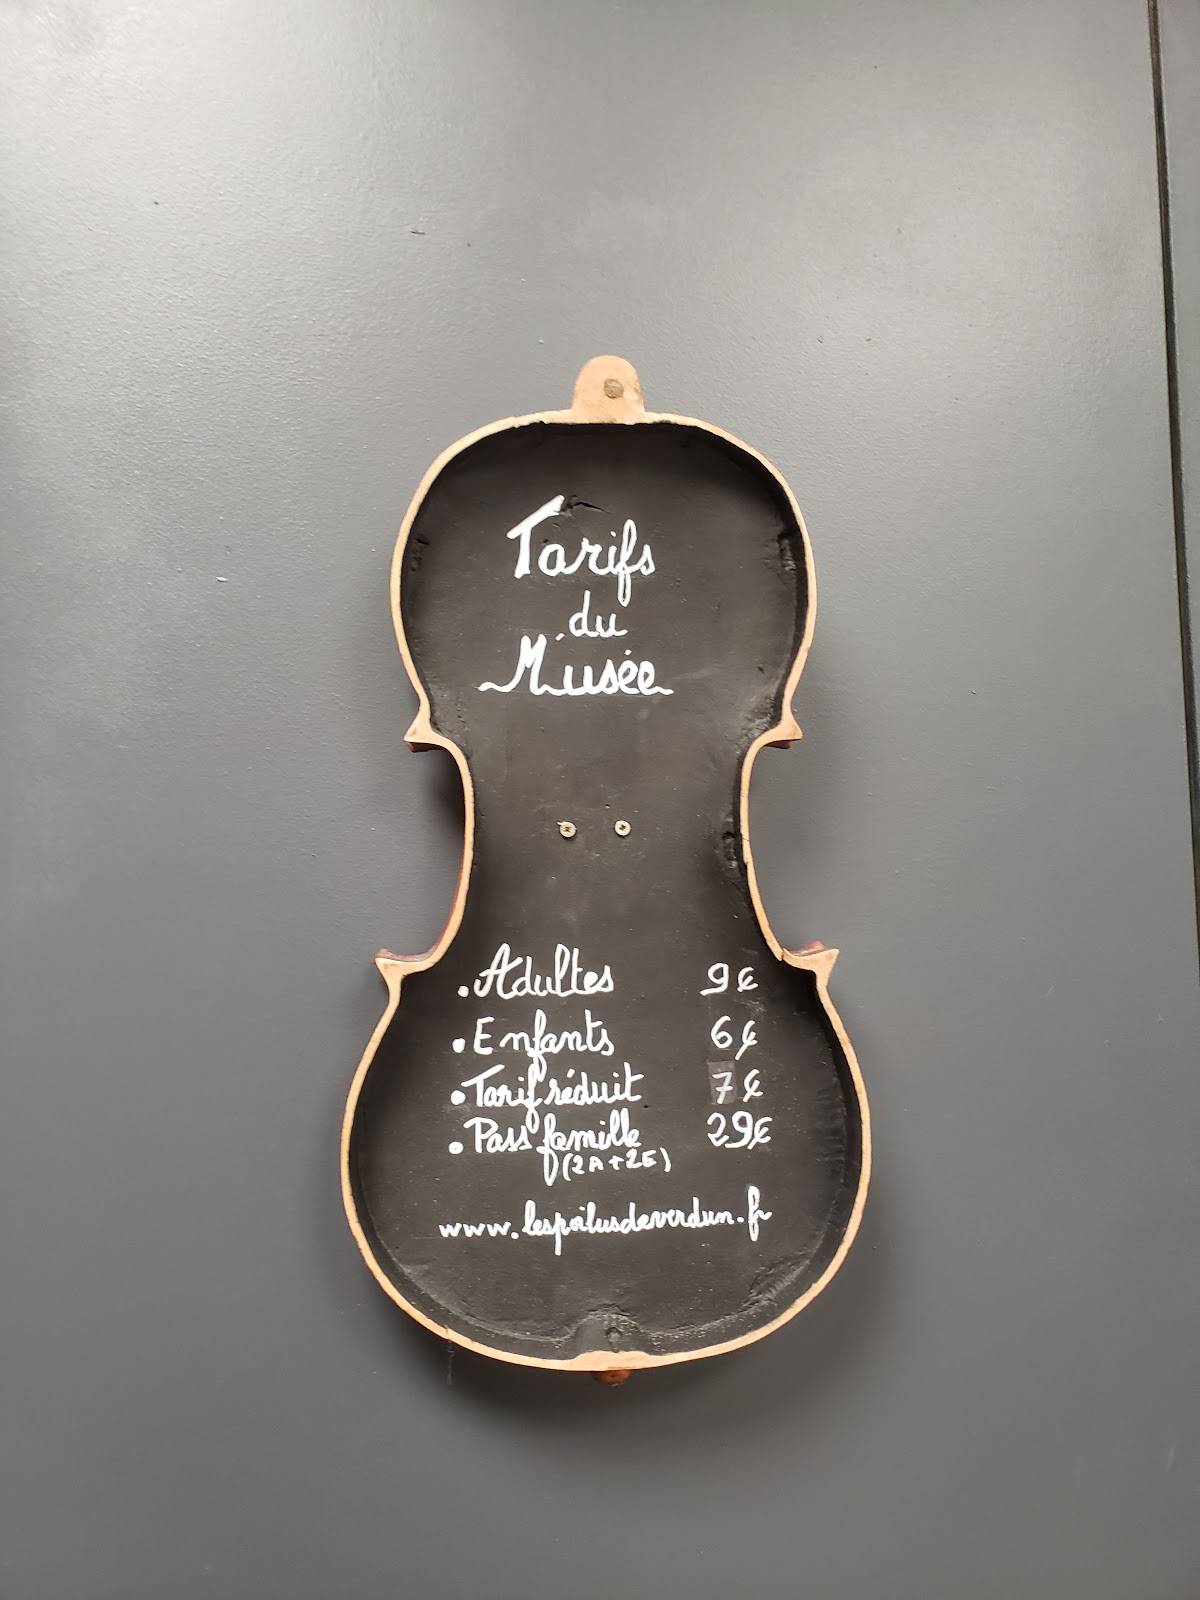 Tarifs
du
Musée
. Adultes 9€
. Enfants 6€
. Tarif réduit 7€
. Pass famille 29€
(2A+2E)
www.lespoilusdeverdun.fr